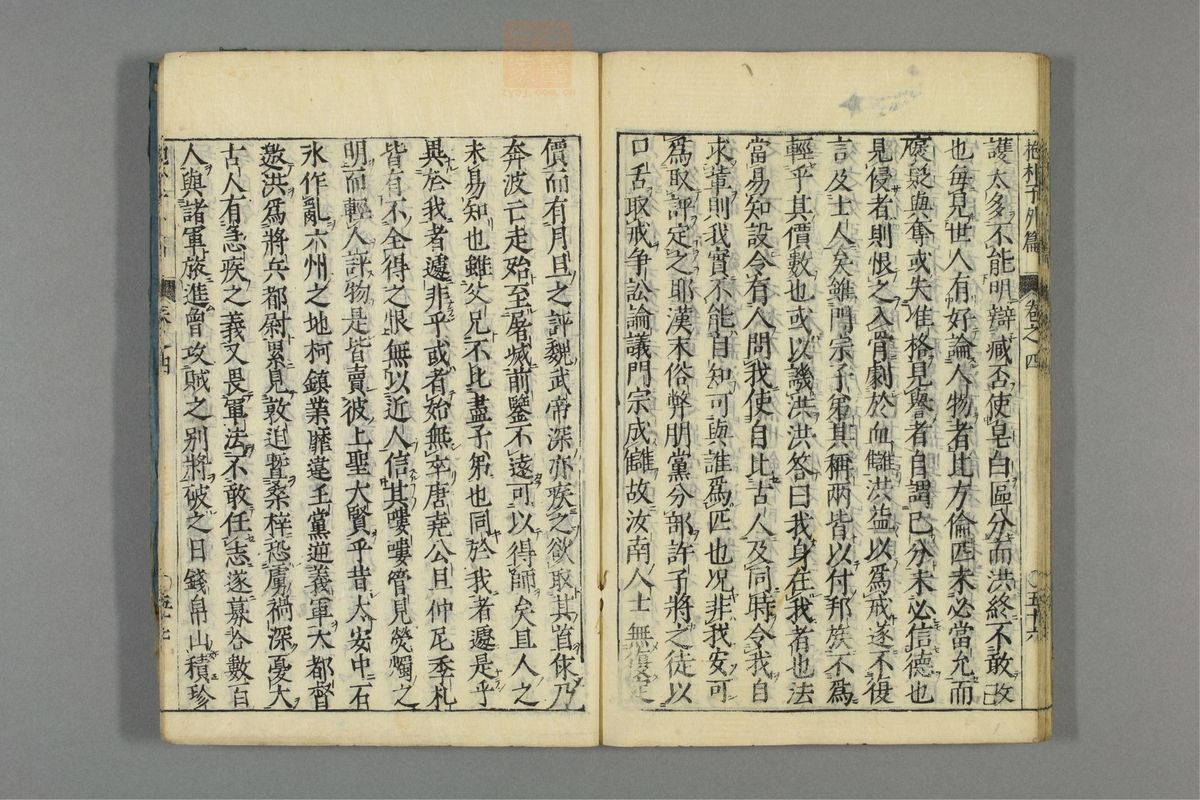 抱朴子外篇 卷之四 〇五十六
護太多不能明辯臧否使皂白區分而洪終不敢改
也每見世人有好論人物者比方倫匹未必當允而
褒貶與奪或失准格見譽者自謂已分未必信德也
見侵者則恨之入骨劇於血讎洪益以爲戒遂不復
言及士人矣雖門宗子弟其稱兩皆以付邦族不爲
輕乎其價數也或以譏洪洪答曰我身在我者也法
當易知設令有人問我使自比古人及同時令我自
求輩則我實不能自知可與誰爲匹也况非我安可
爲取評定之耶漢末俗弊朋黨分部許子將之徒以
口舌取戒争訟論議門宗成讎故汝南人士無復定
價而有月旦之評魏武帝深亦疾之欲取其首俫乃
奔波亡走殆至屠滅前鑒不遠可以得師矣且人之
未易知也雖父兄不比盡子弟也同於我者遽是乎
異於我者遽非乎或者始無卒唐堯公旦仲尼季札
皆有不全得之恨無以近人信其嘍嘍管見熒燭之
明而輕人評物是皆賣彼上聖大賢乎昔太安中石
氷作亂六州之地柯鎮業靡違王黨逆義軍大都督
邀洪爲將兵都尉累見敦迫暨桑梓恐虜禍深憂大
古人有急疾之義又畏軍法不敢任志遂募合數百
人與諸軍旅進曾攻賊之別將破之日錢帛山積珍